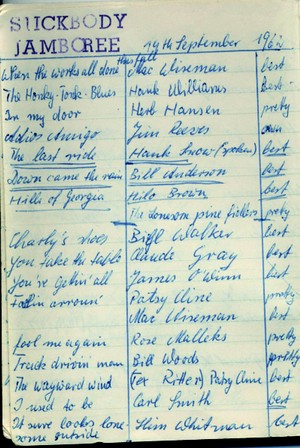 SLICKBODY
JAMBOREE 14th September 1962
When the works all done this fall Mac Wiseman best
The Honky-Tonk-Blues Hank Williams best
In my door Herb Hansen pretty
Adios Amigo Jim Reeves
The last ride Hank Snow (spoken) best
Down came the rain Bill Anderson best
Hills of Georgia Milo Brown best
The lonesome pine fiddlers pretty
Charly's shoes Bill Walker best
You take the table Claude Gray best
You're gettin' all James O'Winn best
Foolin arroun' Patsy Cline pretty
Mac Wiseman best
Fool me again Rose Malleks pretty
Truck drivin man Bill Woods pretty
The Wayward wind Tex Ritter) Patsy Cline best
I used to be Carl Smith best
It sure looks lone-
some outside Slim Whitman best